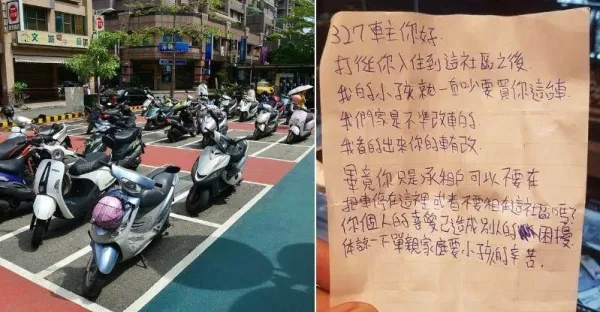 327車主你好.
打從你入住到這社區之後
我的小孩就一直吵要買你這台車
我們家是不準改車的
我看的出來你的車有改.
畢竟你只是承租戶可以不要在
把車停在這裡或者不要租在這社區嗎?
你個人的喜愛已造成別人的困擾
体諒一下單親家庭要小孩的辛苦.